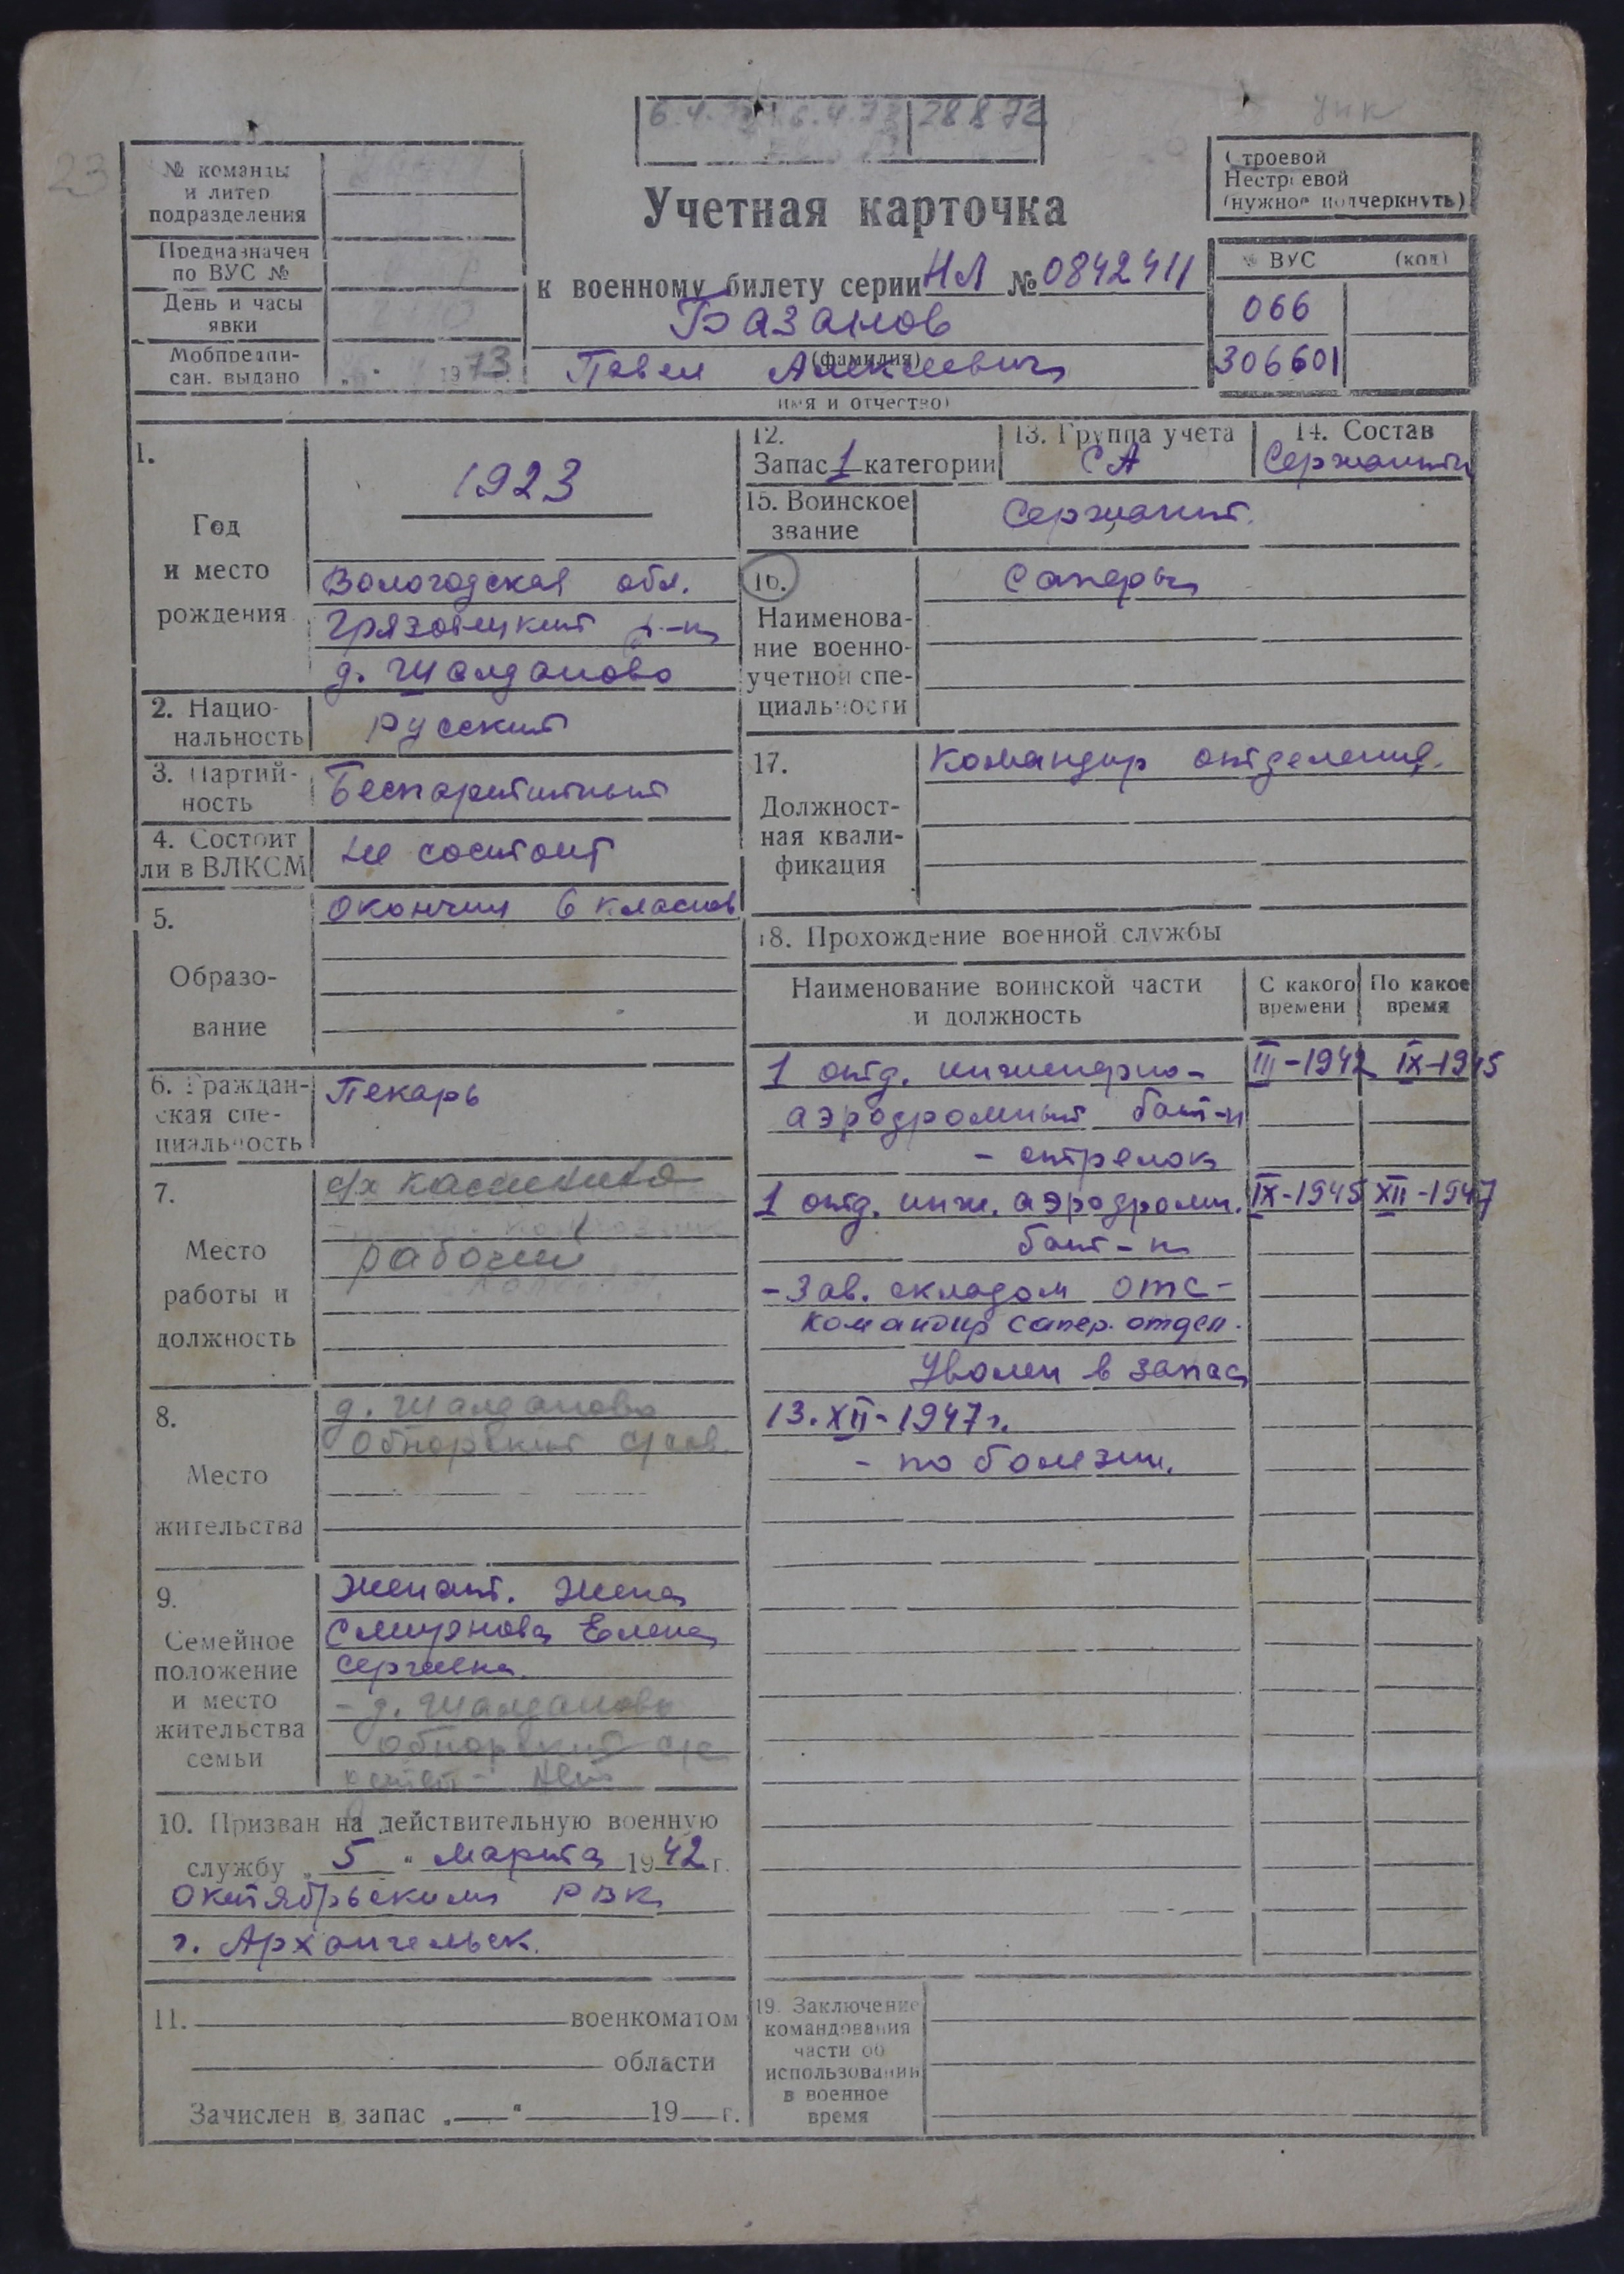 28 8 72
23
№ команды
и литер
подразделения
Предназначен
по ВУС №
День и часы
явки
Мобпредпи-
сан. выдано
1973
Учетная карточка
к военному билету серии НЛ № 0842411
Базанов
(фамилия)
Павел Алексеевич
имя и отчество)
Строевой
Нестроевой
(нужное подчеркнуть)
№ ВУС (код)
066
306601
1.
Год
и место
рождения
1923
Вологодская обл.
Грязовецкий р-н
д. Шалданово
2. Нацио-
нальность
русский
3. Партий-
ность
Беспартийный
4. Состоит
ли в ВЛКСМ
не состоит
5.
Образо-
вание
Окончил 6 класов
6. Граждан-
ская спе-
циальность
Пекарь
7.
Место
работы и
должность
с/х
рабочий
8.
Место
жительства
д. Шалданово
Обнорский с/сов.
9.
Семейное
положение
и место
жительства
семьи
Женат. Жена
Смирнова Елена
Сергеевна
- д. Шалданово
Обнорский с/с
детей - нет
10. Призван на действительную военную
службу „5" марта 1942 г.
Октябрьским РВК
г. Архангельск.
11. военкоматом
области
Зачислен в запас „ " 19 г.
12.
Запас 1 категории
13. Группа учета
СА
14. Состав
Сержанты
15. Воинское
звание
Сержант.
16.
Наименова-
ние военно-
учетной спе-
циальности
Саперы
17.
Должност-
ная квали-
фикация
Командир отделения.
18. Прохождение военной службы
Наименование воинской части
и должность
С какого
времени
По какое
время
1 отд. инженерно- III-1942 IX-1945
аэродромный бат-н
- стрелок
1 отд. инж. аэродромн. IX-1945 XII-1947
бат-н
- Зав. складом ОТС-
командир сапер. отдел.
Уволен в запас
13.XII-1947г.
- по болезни.
19. Заключение
командования
части об
использовании
в военное
время